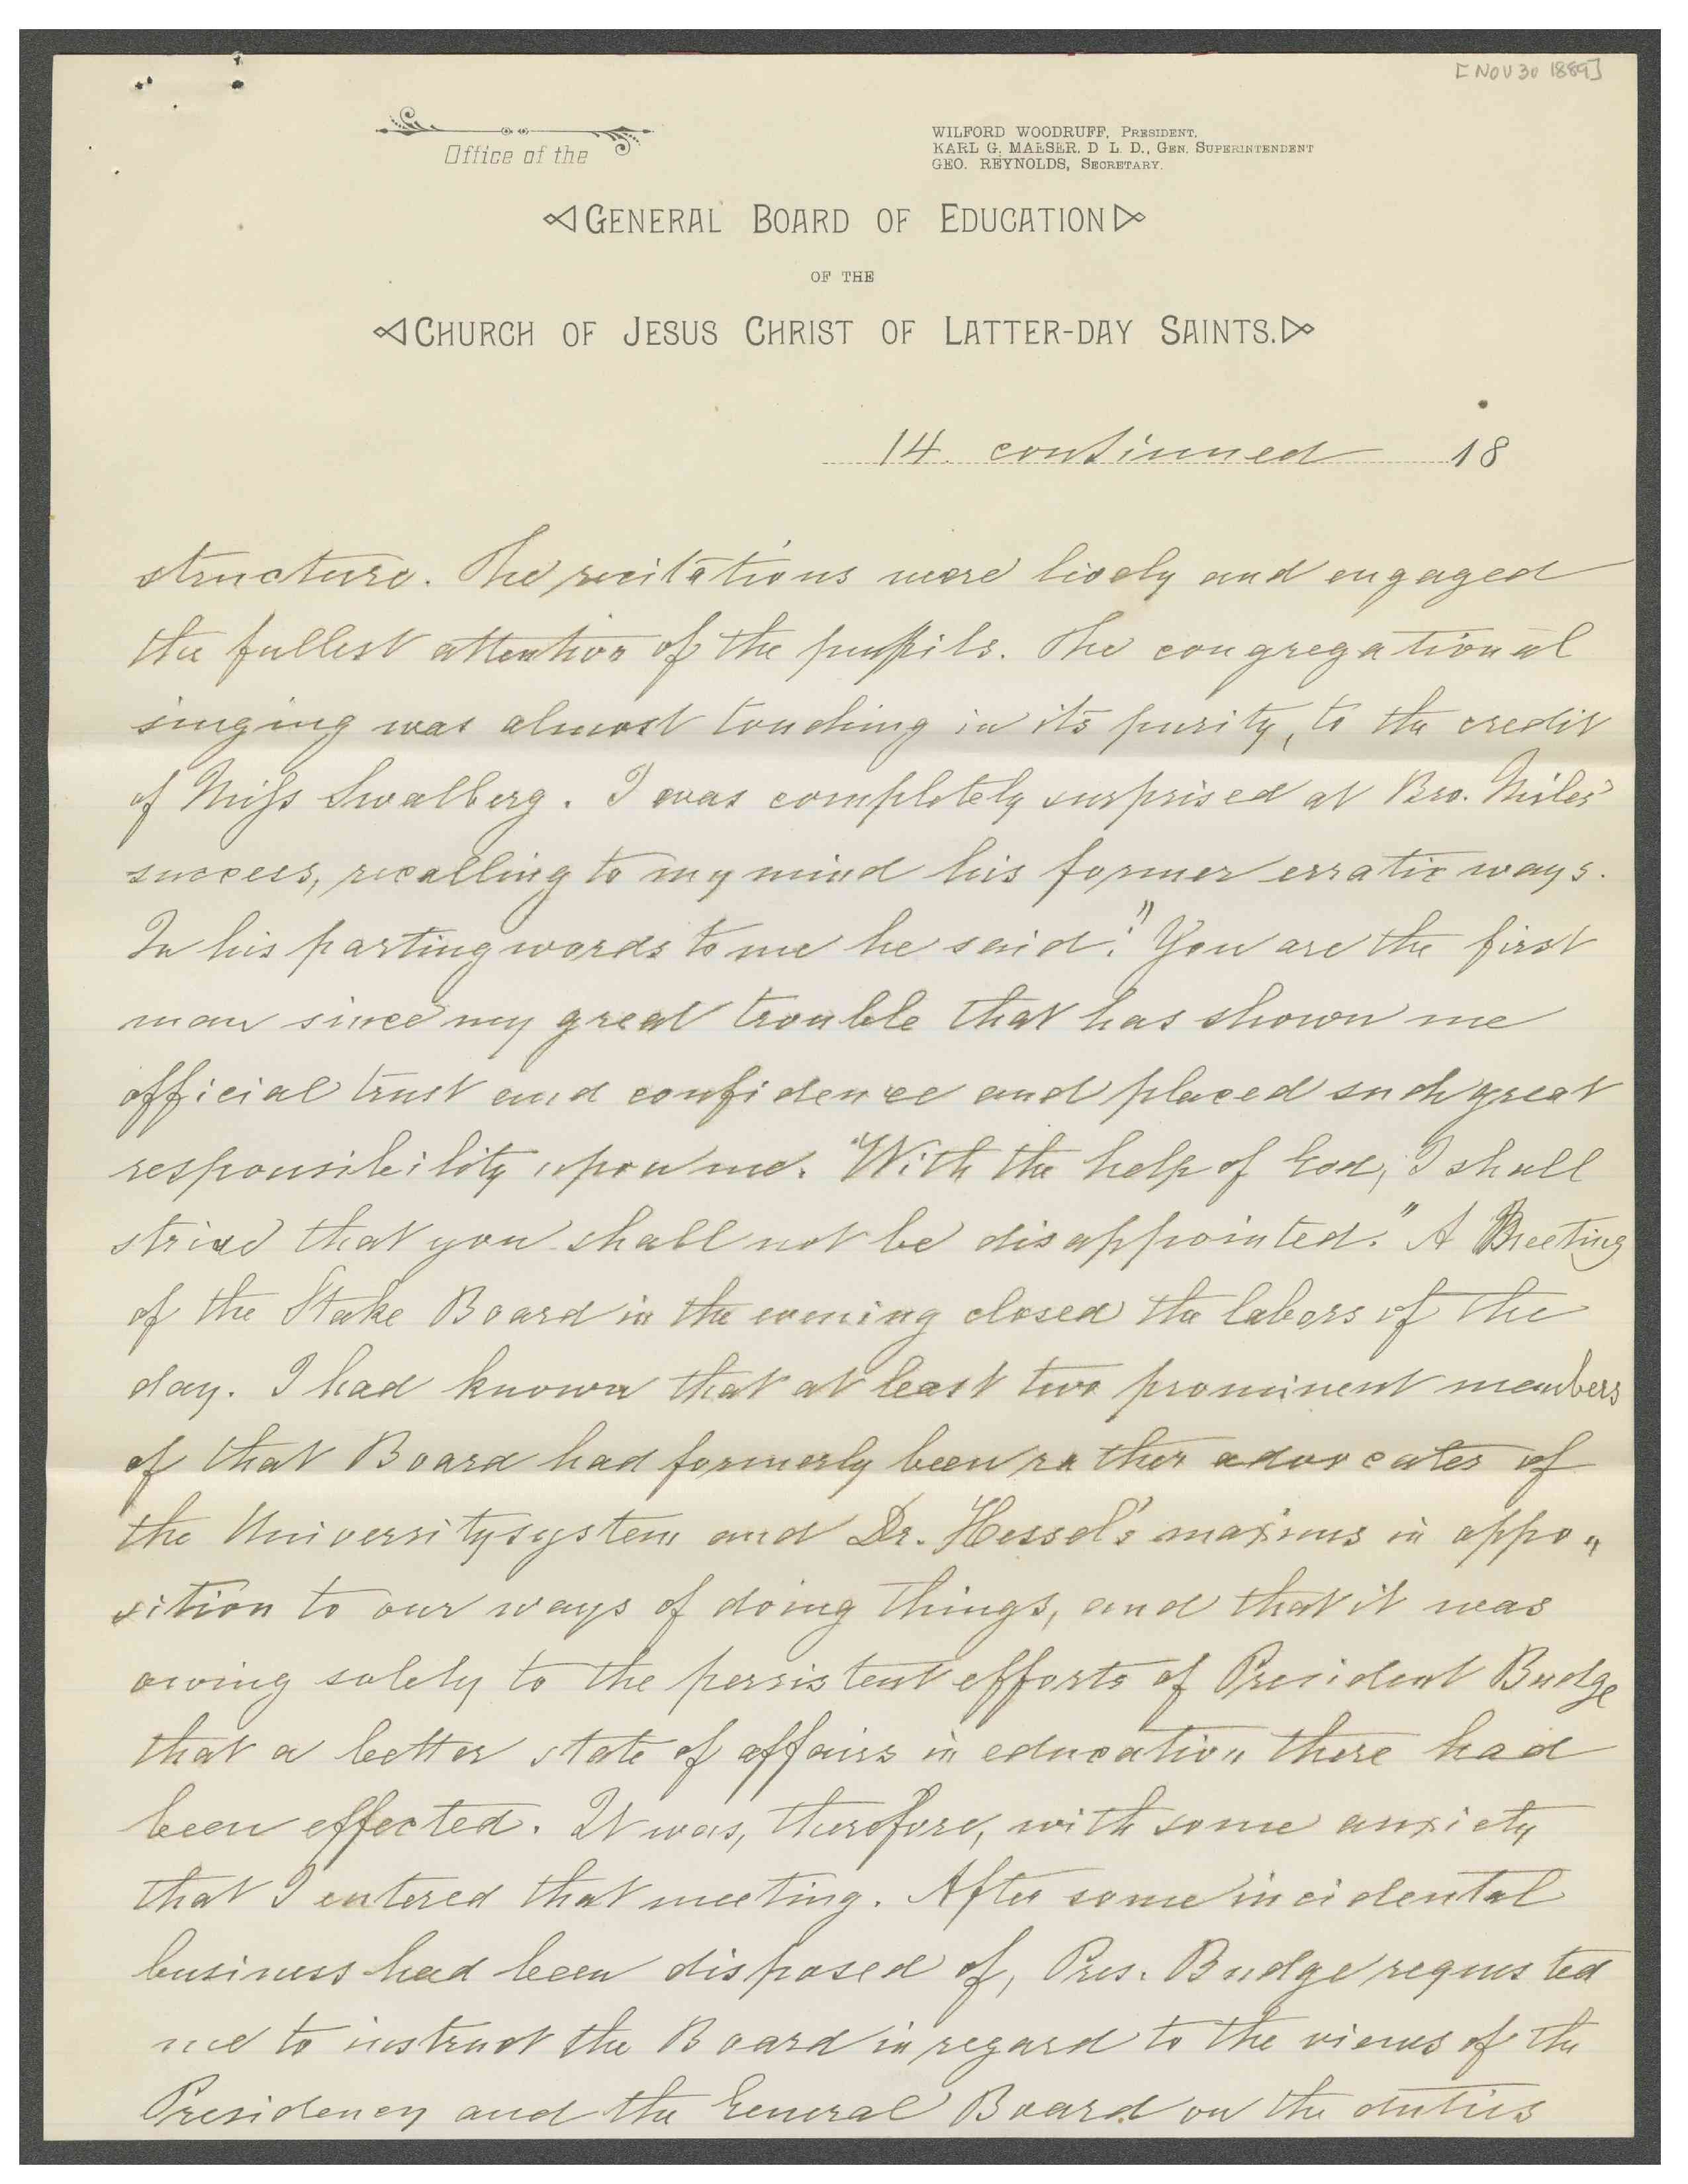 [NOV 30 1889]
Office of the
WILFORD WOODRUFF, PRESIDENT.
KARL G. MAESER. D L. D., GEN. SUPERINTENDENT
GEO. REYNOLDS, SECRETARY.
GENERAL BOARD OF EDUCATION
OF THE
CHURCH OF JESUS CHRIST OF LATTER-DAY SAINTS.
14. continued 18
structure. The recitations were lively and engaged
the fullest attention of the pupils. The congregational
singing was almost touching in its purity, to the credit
of Miss Swalberg. I was completely surprised at Bro. Miles'
success, recalling to my mind his former erratic ways.
In his parting words to me he said: "You are the first
man since my great trouble that has shown me
official trust and confidence and placed such great
responsibility upon me. "With the help of God, I shall
strive that you shall not be disappointed." A Meeting
of the Stake Board in the evening closed the labors of the
day. I had known that at least two prominent members
of that Board had formerly been rather advocates of
the Universitysystem and Dr. Hessel's maxims in oppo"
sition to our ways of doing things, and that it was
owing solely to the persistent efforts of President Budge
that a better state of affairs in education there had
been effected. It was, therefore, with some anxiety
that I entered that meeting. After some incidental
business had been disposed of, Pres. Budge requested
me to instruct the Board in regard to the views of the
Presidency and the General Board on the duties